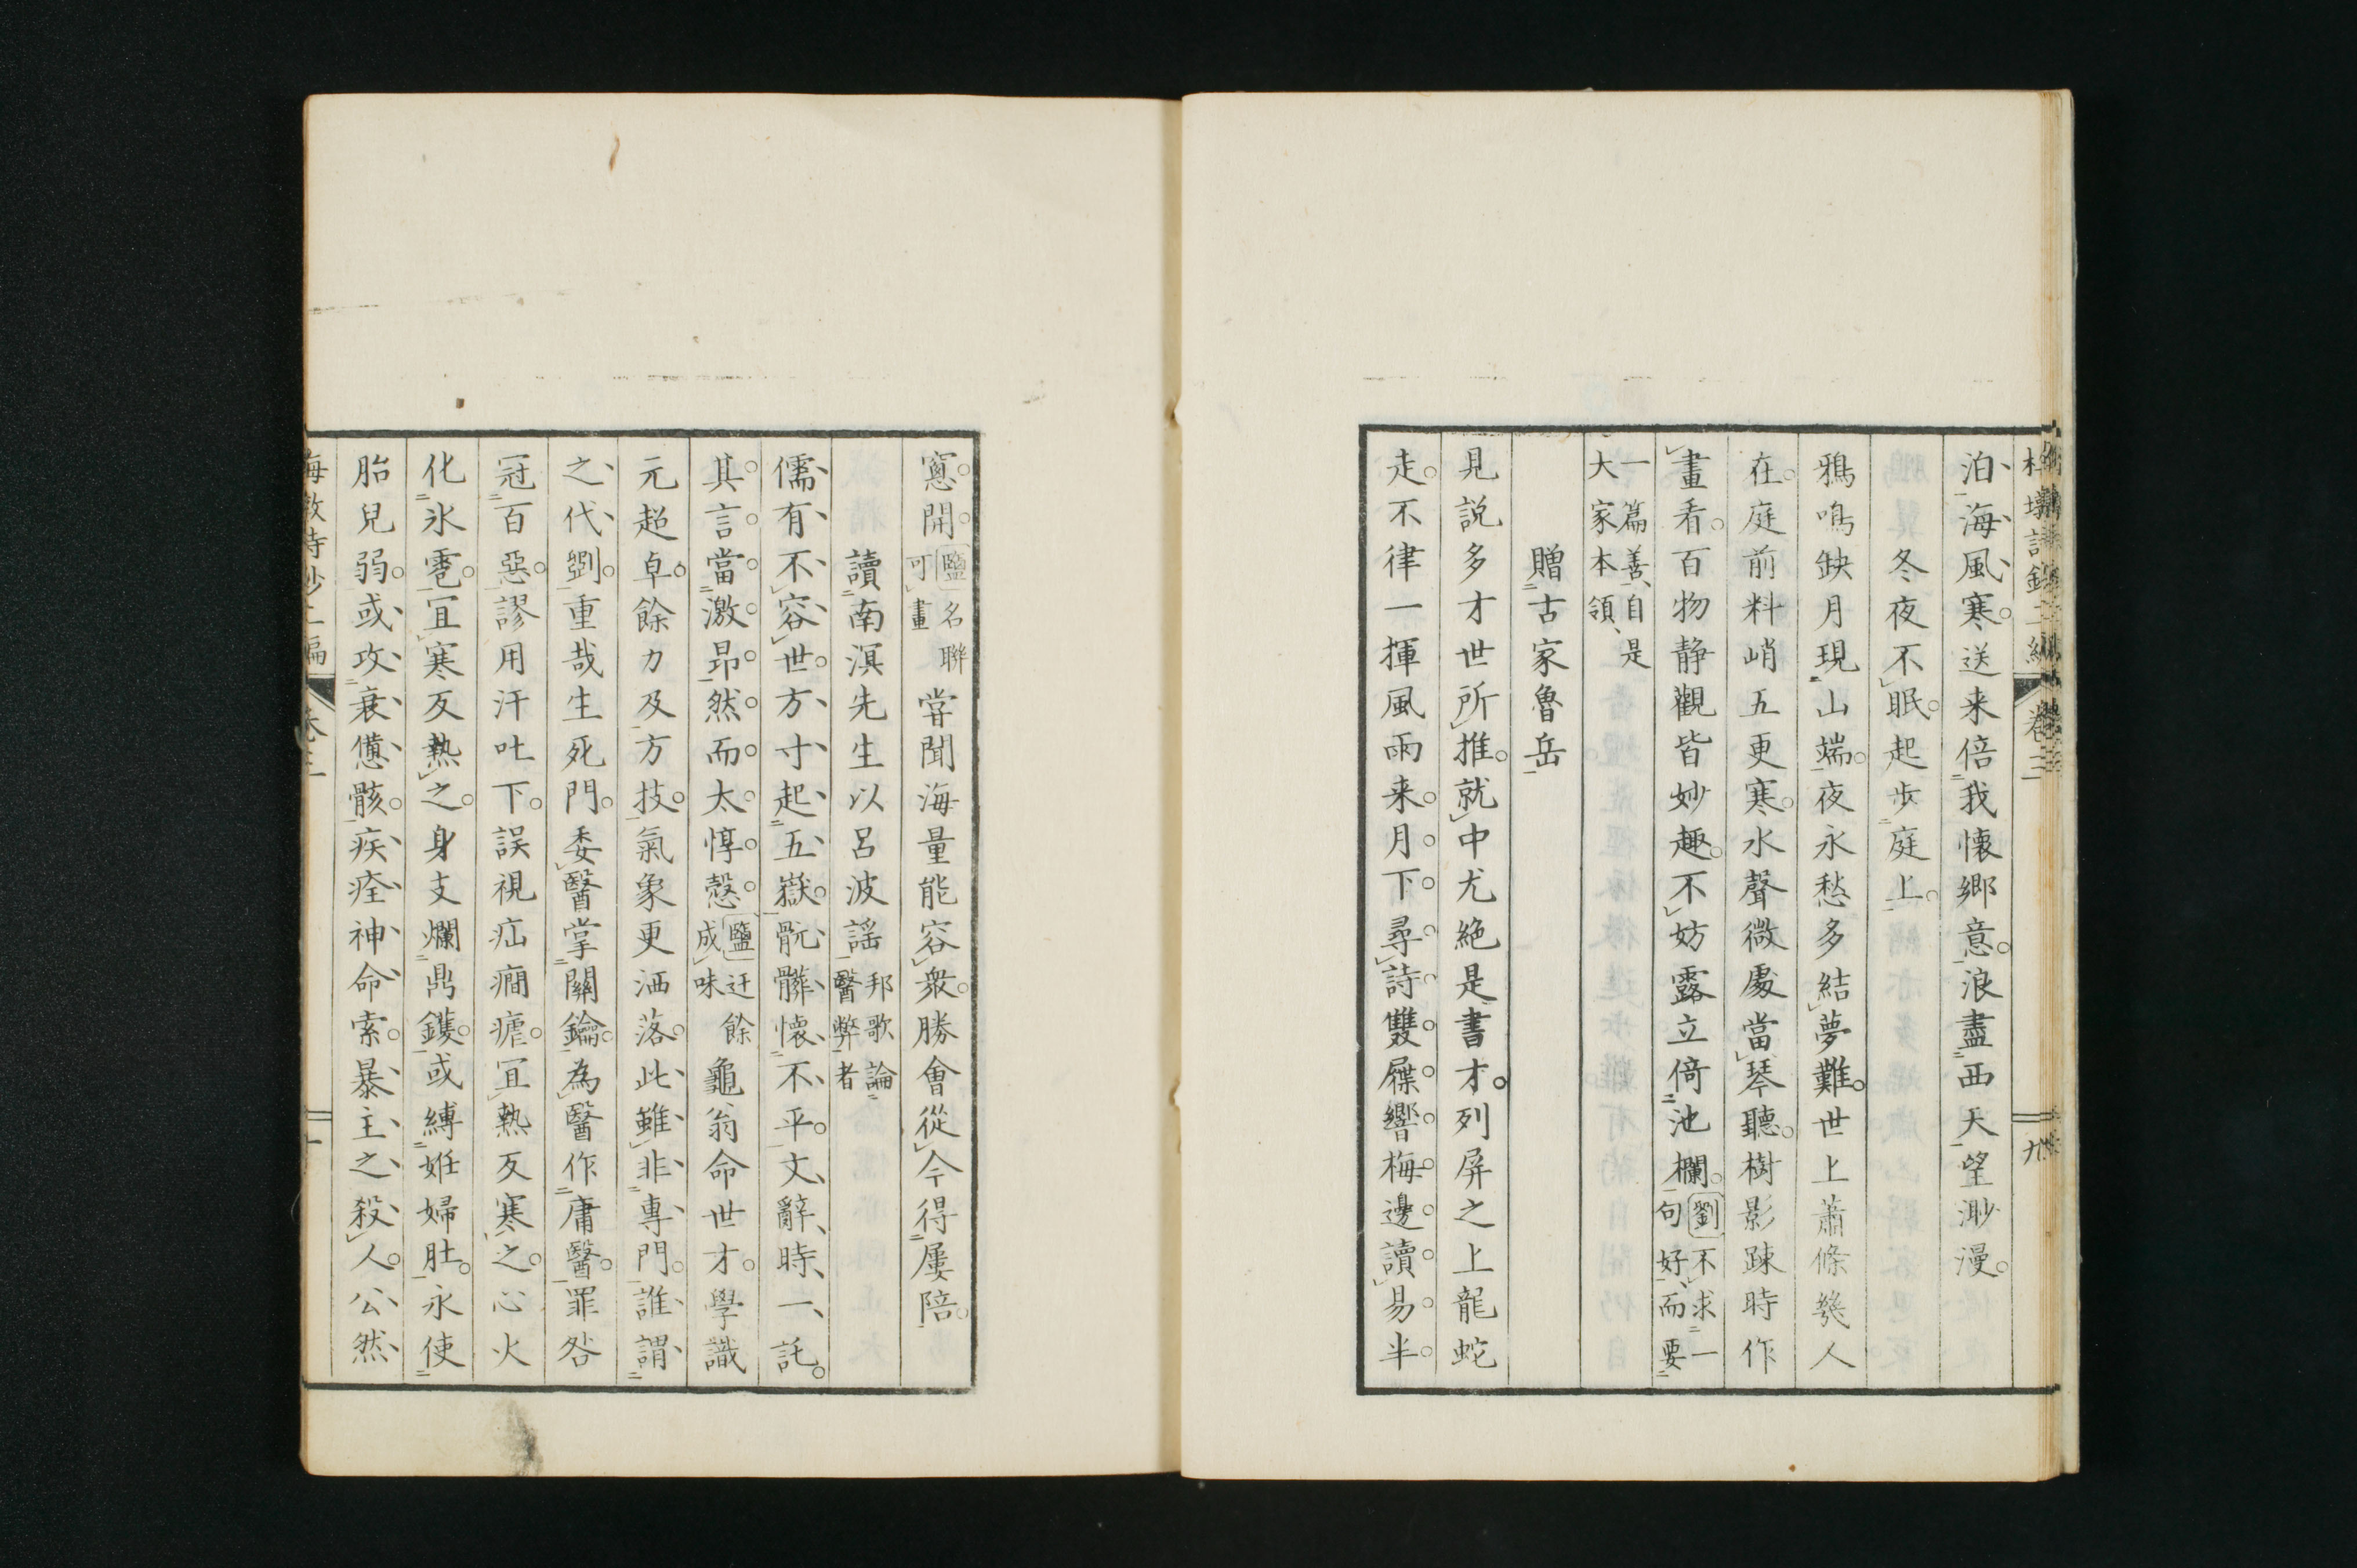 泊海風寒送来倍我懐郷意浪盡西天望渺漫
冬夜不眠起歩庭上
鴉鳴缺月現山端夜永愁多結夢難世上蕭條幾人
在庭前料峭五更寒水聲微處當琴聽樹影踈時作
畫看百物静觀皆妙趣不妨露立倚池欄劉不求一
句好而要
一篇善自是
大家本領
贈古家魯岳
見説多才世所推就中尤絶是書才列屏之上龍蛇
走不律一揮風雨来月下尋詩雙屧響梅邊讀易半
卷三
九
窻開鹽名聯
可畫
甞聞海量能容衆勝會從今得屢陪
讀南溟先生以呂波謡邦歌論
醫弊者
儒有不容世方寸起五嶽骯髒懐不平文辭時一託
其言當激昂然而太惇慤鹽迂餘
成味
龜翁命世才學識
元超卓餘力及方技氣象更洒落此雖非專門誰謂
之代劉重哉生死門委醫掌關鑰為醫作庸醫罪咎
冠百惡謬用汗吐下誤視疝癎瘧宜熱反寒之心火
化氷雹宜寒反熱之身支爛鼎鑊或縛妊婦肚永使
胎兒弱或攻衰憊骸疾痊神命索暴主之殺人公然
卷三
十